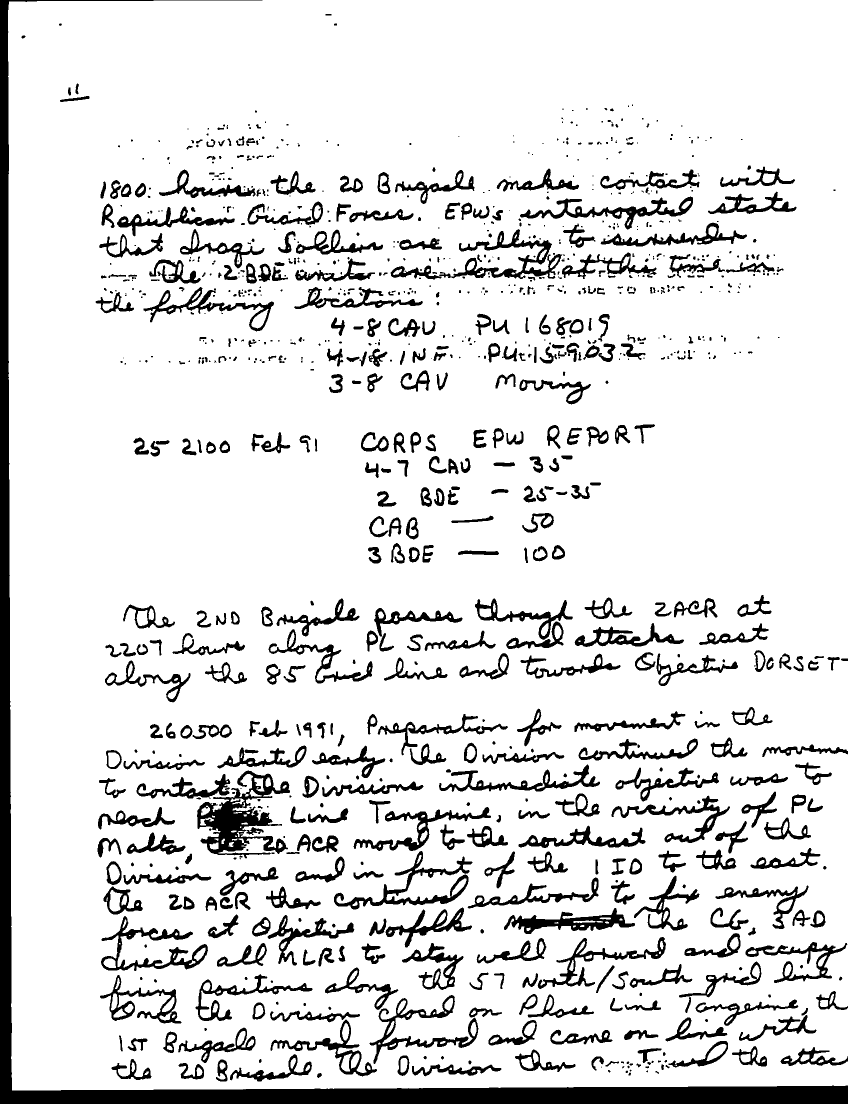 11
provided
1800 hours the 2D Brigade makes contact with
Republican Guard Forces. EPWs interrogated state
that Iraqi Soldiers are willing to surrender.
The 2 BDE units are located at this time in
the following locatons:
4-8 CAV PU 168019
4-18 INF PU 159032
3-8 CAV Moving.
25 2100 Feb 91 CORPS EPW REPORT
4-7 CAV — 35
2 BDE — 25-35
CAB — 50
3 BDE — 100
The 2ND Brigade passes through the 2ACR at
2207 hours along PL Smash and attacks east
along the 85 Grid line and towards Objective DORSETT
260500 Feb 1991, Preparation for movement in the
Division started early. The Division continued the movemen
to contact. The Divisions intermediate objective was to
reach Phase Line Tangerine, in the vicinity of PL
Malta, the 2D ACR moved to the southeast out of the
Division zone and in front of the 1 ID to the east.
The 2D ACR then continued eastward to fix enemy
forces at Objective Norfolk. The CG, 3AD
directed all MLRS to stay well forward and occupy
firing positions along the 57 North/South grid line.
Once the Division closed on Phase Line Tangerine, th
1ST Brigade moved forward and came on line with
the 2D Brigade. The Division then continued the attac